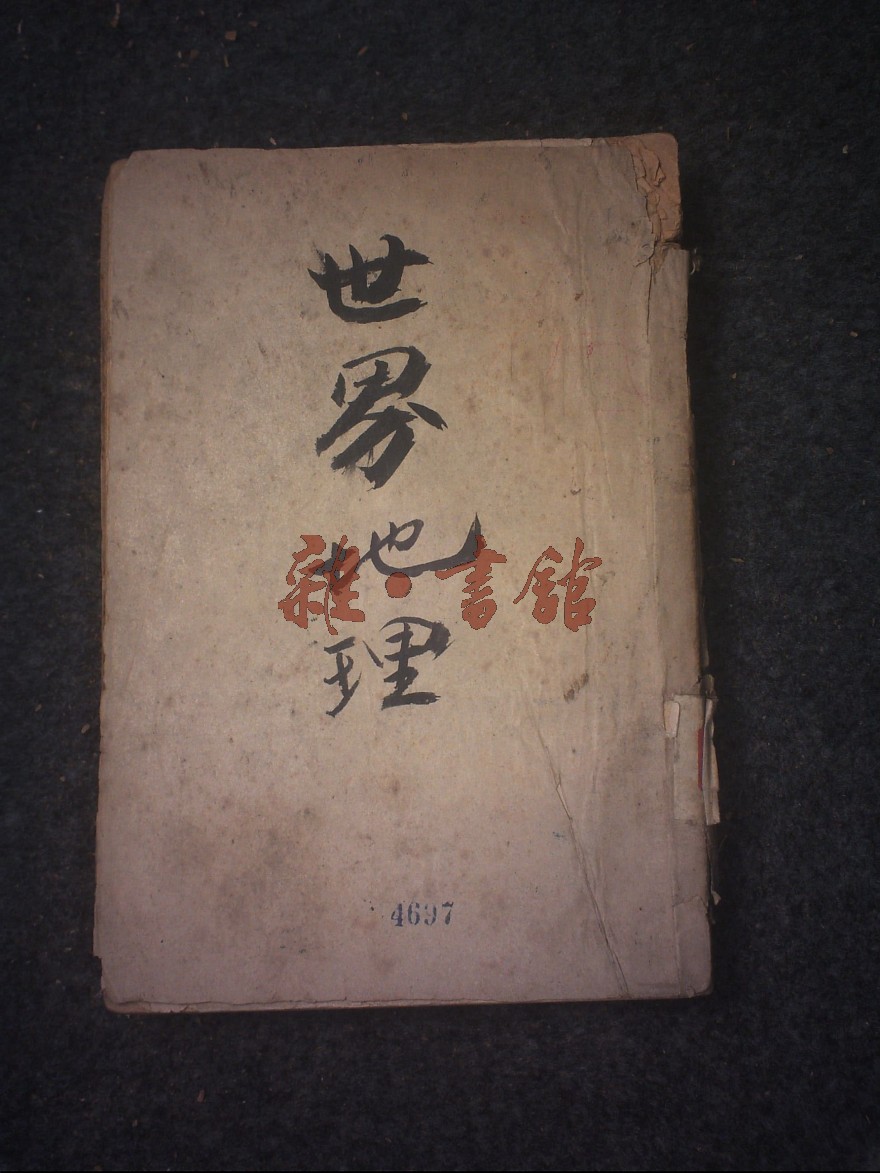 世界地理
雜·書館
4697